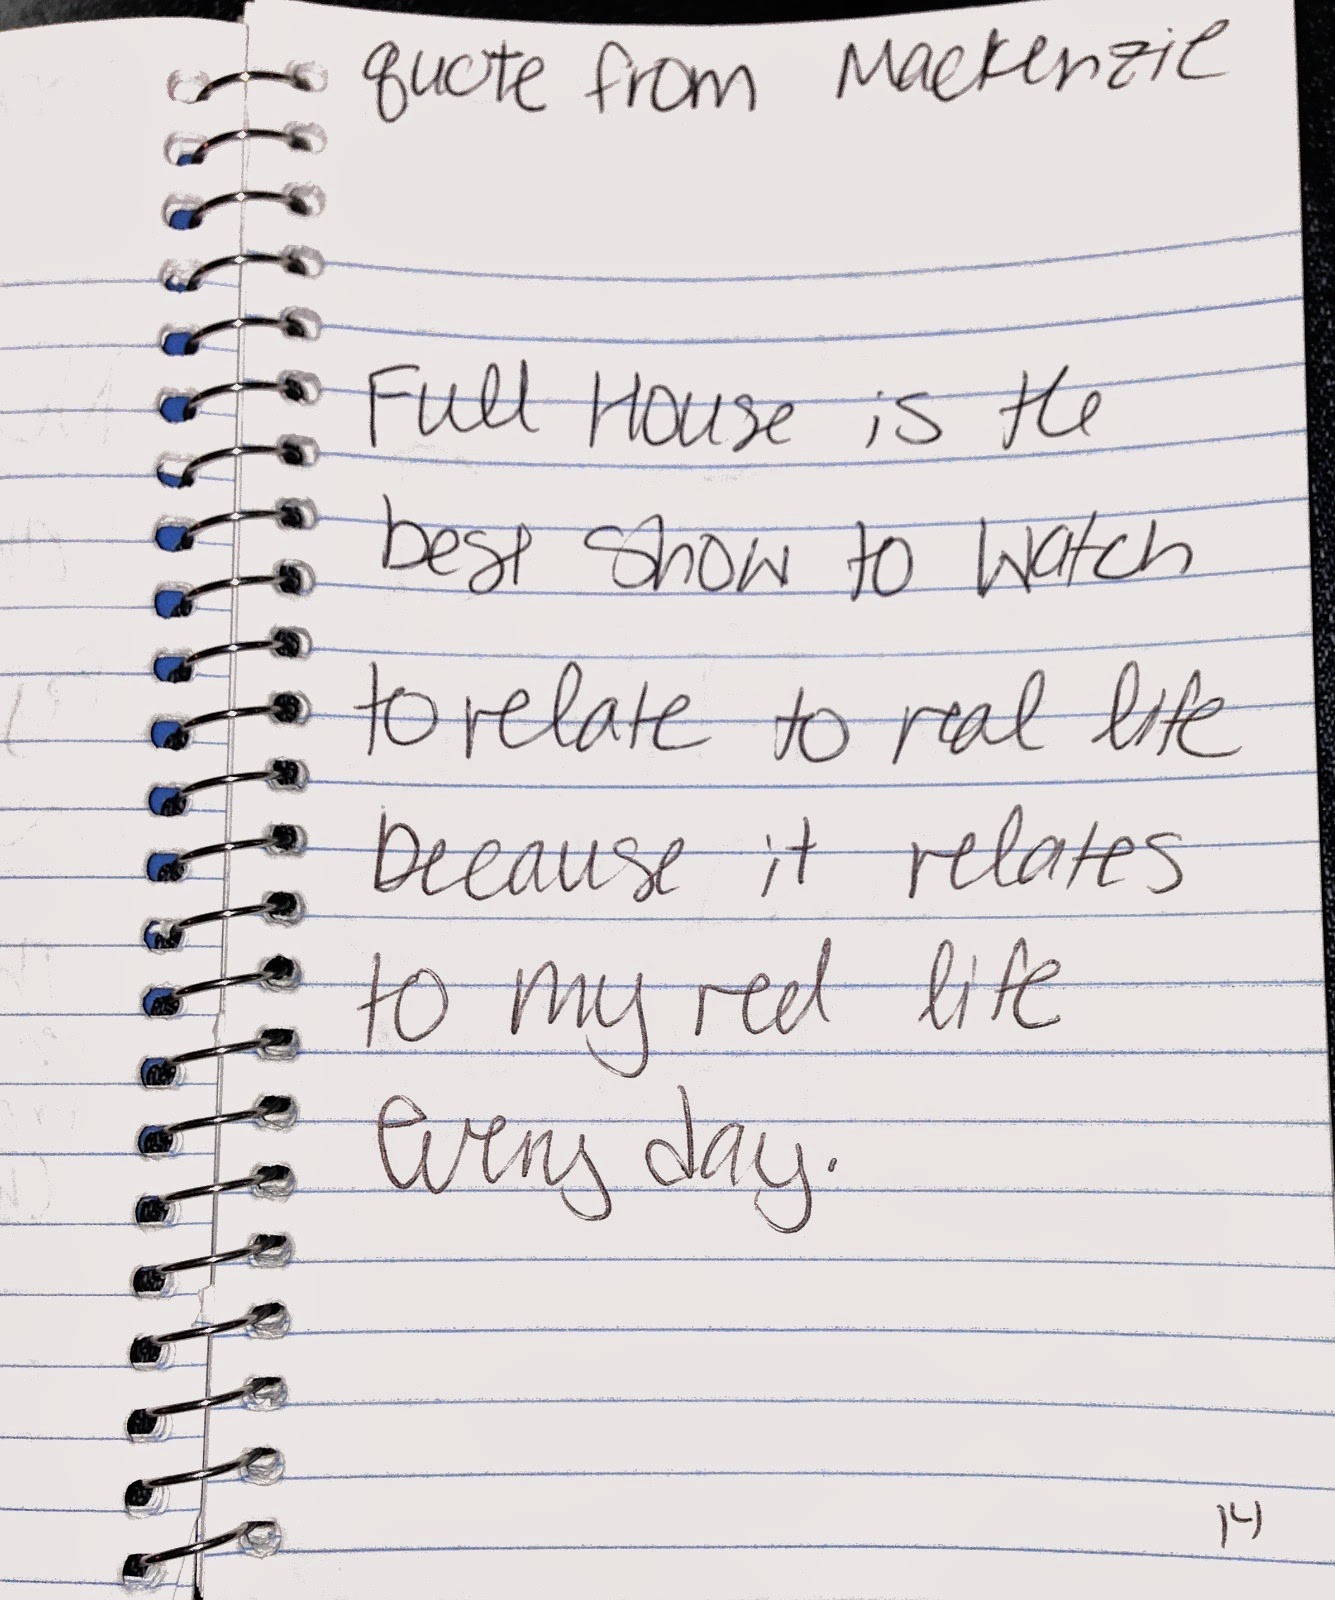 quote from Mackenzie
Full House is the
best show to watch
to relate to real life
because it relates
to my real life
every day.
14